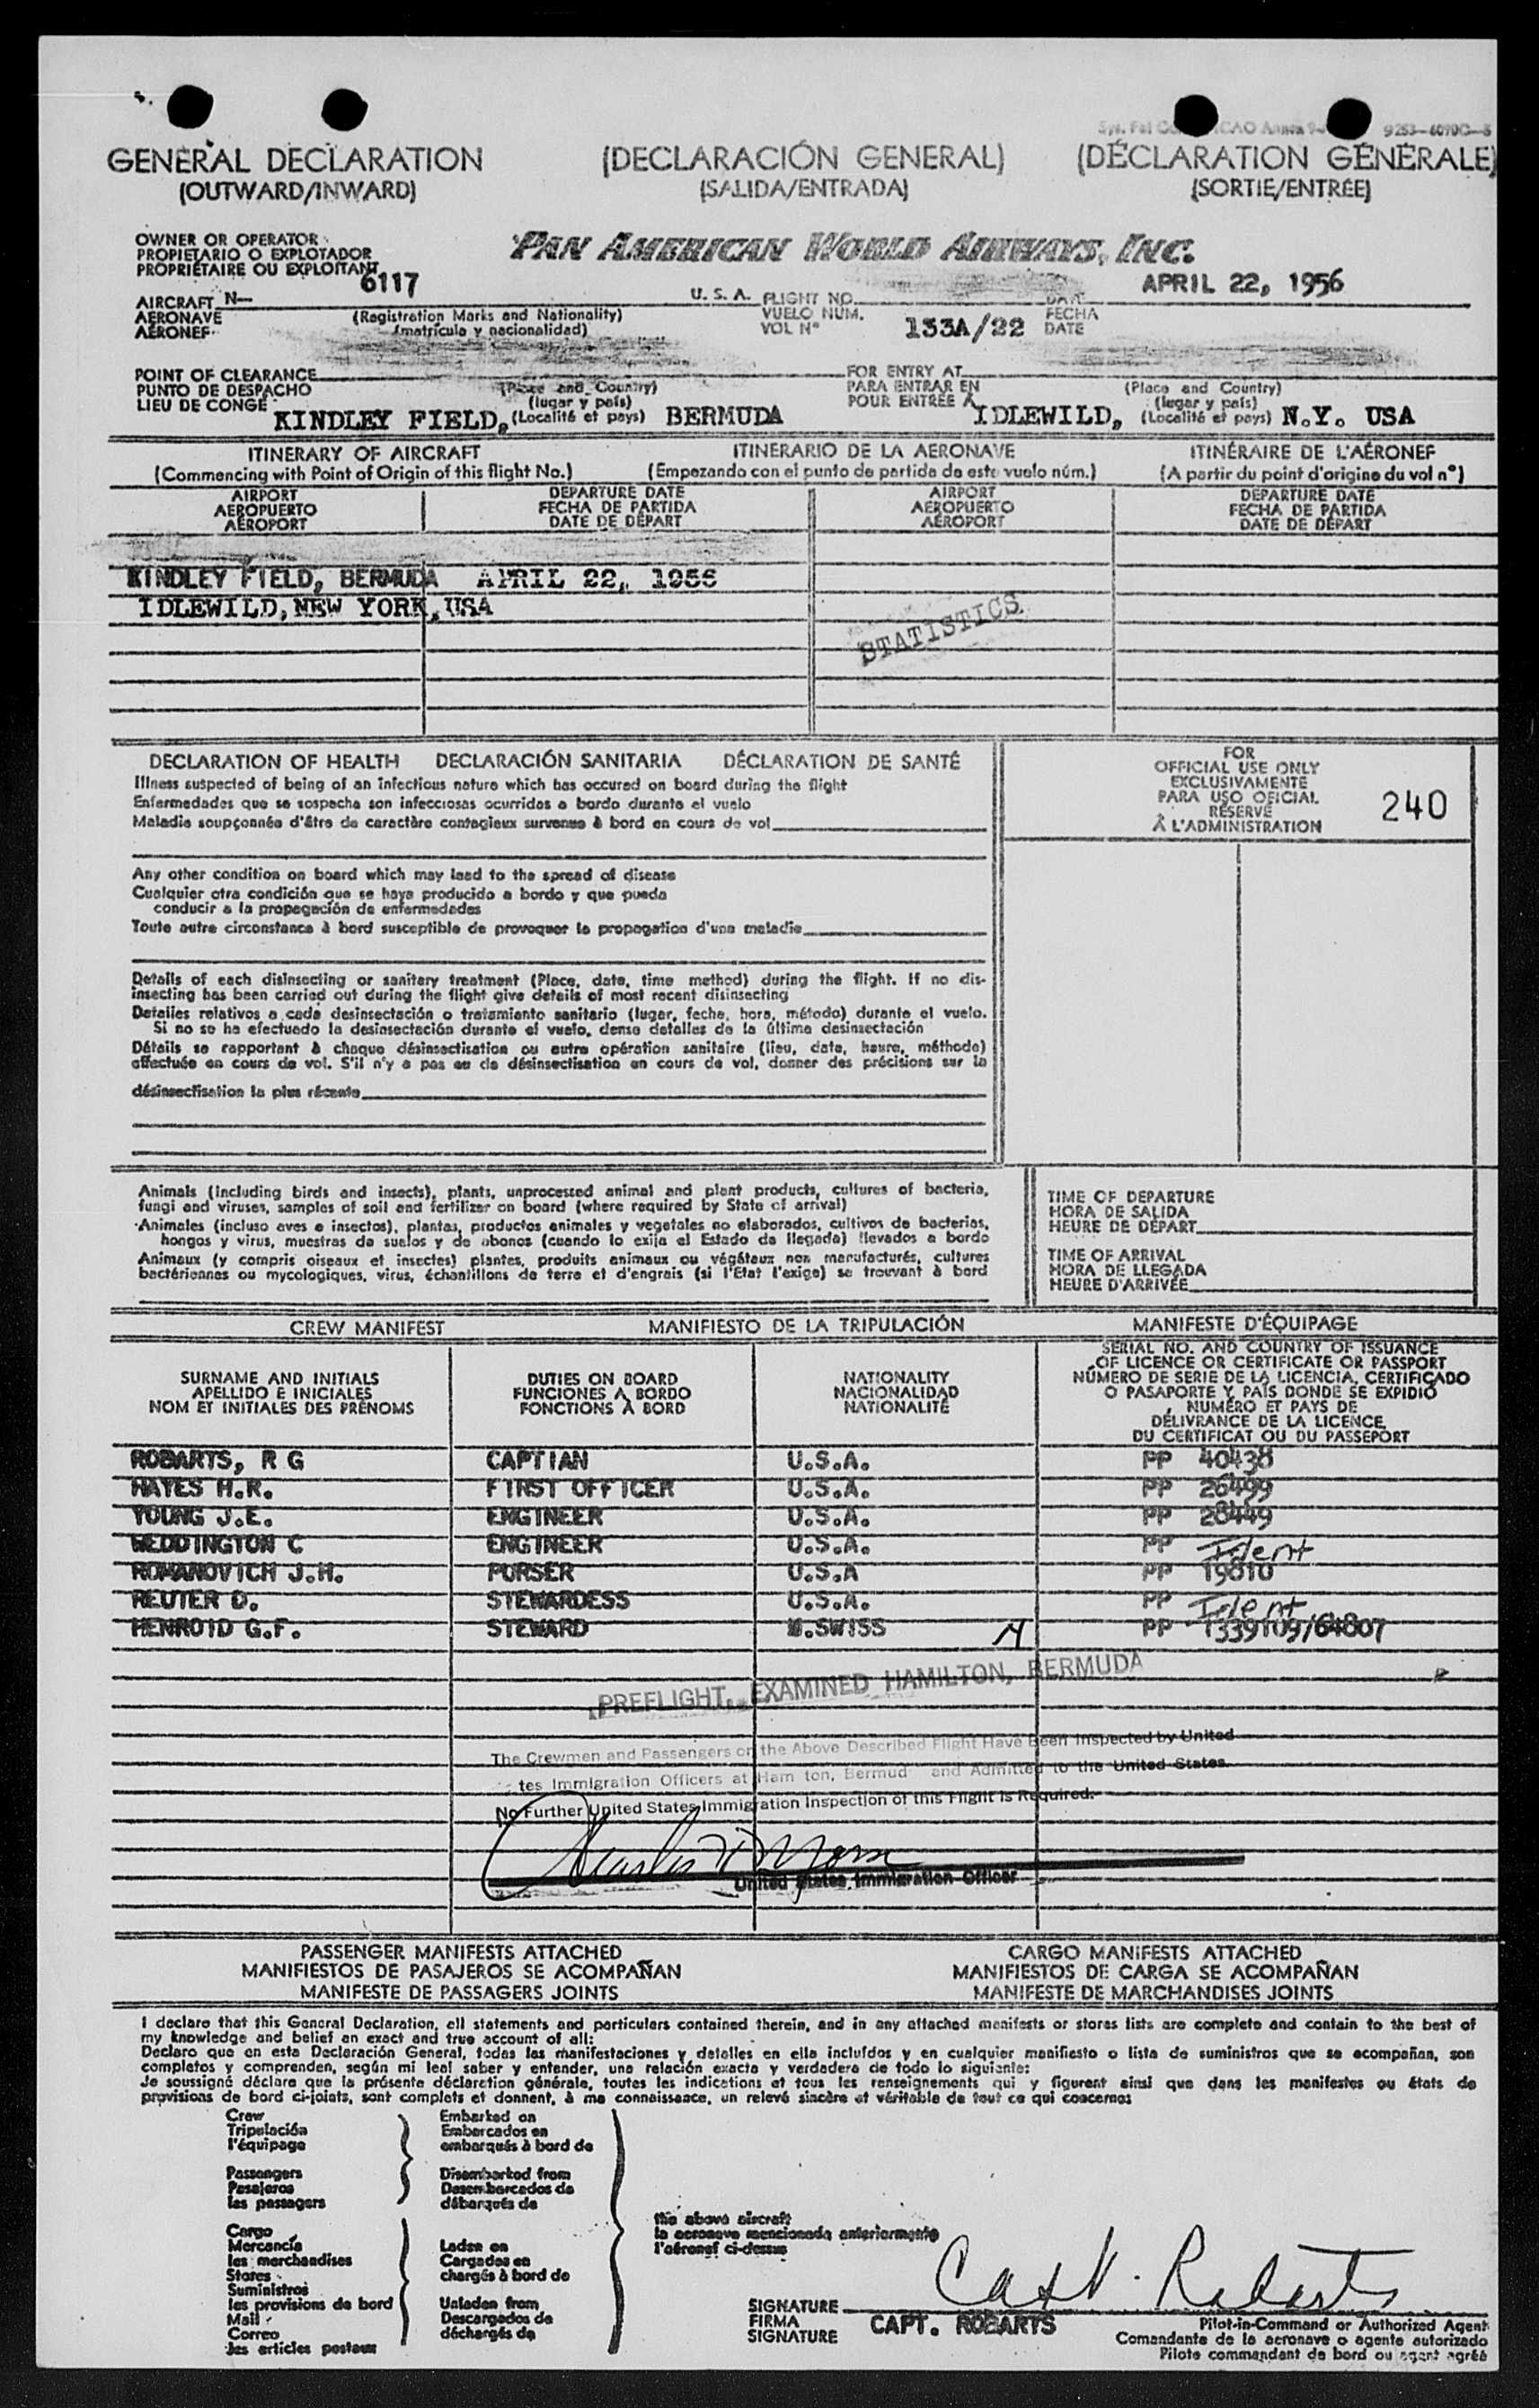 9253-6090C-S
GENERAL DECLARATION (DECLARACIÓN GENERAL) (DÉCLARATION GÉNÉRALE)
(OUTWARD/INWARD) (SALIDA/ENTRADA) (SORTIE/ENTRÉE)
OWNER OR OPERATOR
PROPIETARIO O EXPLOTADOR
PROPRIÉTAIRE OU EXPLOITANT
PAN AMERICAN WORLD AIRWAYS, INC.
AIRCRAFT N- 6117 U. S. A. FLIGHT NO. DATE APRIL 22, 1956
AERONAVE (Registration Marks and Nationality) VUELO NUM. FECHA
AÉRONEF (matrícula y nacionalidad) VOL N° 133A/22 DATE
POINT OF CLEARANCE FOR ENTRY AT
PUNTO DE DESPACHO (Place and Country) PARA ENTRAR EN (Place and Country)
(lugar y país) (lugar y país)
LIEU DE CONGÉ KINDLEY FIELD, (Localité et pays) BERMUDA POUR ENTRÉE À IDLEWILD, (Localité et pays) N.Y. USA
ITINERARY OF AIRCRAFT ITINERARIO DE LA AERONAVE ITINÉRAIRE DE L'AÉRONEF
(Commencing with Point of Origin of this flight No.) (Empezando con el punto de partida de este vuelo núm.) (A partir du point d'origine du vol n°)
AIRPORT DEPARTURE DATE AIRPORT DEPARTURE DATE
AEROPUERTO FECHA DE PARTIDA AEROPUERTO FECHA DE PARTIDA
AÉROPORT DATE DE DÉPART AÉROPORT DATE DE DÉPART
KINDLEY FIELD, BERMUDA APRIL 22, 1956
IDLEWILD, NEW YORK, USA
STATISTICS
DECLARATION OF HEALTH DECLARACIÓN SANITARIA DÉCLARATION DE SANTÉ
Illness suspected of being of an infectious nature which has occured on board during the flight
Enfermedades que se sospecha son infecciosas ocurridas a bordo durante el vuelo
Maladie soupçonnée d'être de caractère contagieux survenue à bord en cours de vol
Any other condition on board which may lead to the spread of disease
Cualquier otra condición que se haya producido a bordo y que pueda
conducir a la propagación de enfermedades
Toute autre circonstance à bord susceptible de provoquer la propagation d'une maladie
Details of each disinsecting or sanitary treatment (Place, date, time method) during the flight. If no dis-
insecting has been carried out during the flight give details of most recent disinsecting
Detalles relativos a cada desinsectación o tratamiento sanitario (lugar, fecha, hora, método) durante el vuelo.
Si no se ha efectuado la desinsectación durante el vuelo, dense detalles de la última desinsectación
Détails se rapportant à chaque désinsectisation ou autre opération sanitaire (lieu, date, heure, méthode)
effectuée en cours de vol. S'il n'y a pas eu de désinsectisation en cours de vol, donner des précisions sur la
désinsectisation la plus récente
FOR
OFFICIAL USE ONLY
EXCLUSIVAMENTE
PARA USO OFICIAL
RÉSERVÉ
À L'ADMINISTRATION
240
Animals (including birds and insects), plants, unprocessed animal and plant products, cultures of bacteria,
fungi and viruses, samples of soil and fertilizer on board (where required by State of arrival)
Animales (incluso aves e insectos), plantas, productos animales y vegetales no elaborados, cultivos de bacterias,
hongos y virus, muestras de suelos y de abonos (cuando lo exija el Estado de llegada) llevados a bordo
Animaux (y compris oiseaux et insectes) plantes, produits animaux ou végétaux non manufacturés, cultures
bactériennes ou mycologiques, virus, échantillons de terre et d'engrais (si l'État l'exige) se trouvant à bord
TIME OF DEPARTURE
HORA DE SALIDA
HEURE DE DÉPART
TIME OF ARRIVAL
HORA DE LLEGADA
HEURE D'ARRIVÉE
CREW MANIFEST MANIFIESTO DE LA TRIPULACIÓN MANIFESTE D'ÉQUIPAGE
SURNAME AND INITIALS
APELLIDO E INICIALES
NOM ET INITIALES DES PRÉNOMS
DUTIES ON BOARD
FUNCIONES A BORDO
FONCTIONS À BORD
NATIONALITY
NACIONALIDAD
NATIONALITÉ
SERIAL NO. AND COUNTRY OF ISSUANCE
OF LICENCE OR CERTIFICATE OR PASSPORT
NÚMERO DE SERIE DE LA LICENCIA, CERTIFICADO
O PASAPORTE Y PAÍS DONDE SE EXPIDIÓ
NUMÉRO ET PAYS DE
DÉLIVRANCE DE LA LICENCE,
DU CERTIFICAT OU DU PASSEPORT
ROBARTS, R G CAPTIAN U.S.A. PP 40438
HAYES H.R. FIRST OFFICER U.S.A. PP 26499
YOUNG J.E. ENGINEER U.S.A. PP 28449
WEDDINGTON C ENGINEER U.S.A. PP Ident
ROMANOVICH J.H. PURSER U.S.A PP 19810
REUTER D. STEWARDESS U.S.A. PP Ident
HENROID G.F. STEWARD SWISS PP 1339109/64807
PREFLIGHT EXAMINED HAMILTON, BERMUDA
The Crewmen and Passengers on the Above Described Flight Have Been Inspected by United
tes Immigration Officers at Ham ton, Bermud and Admitted to the United States.
No Further United States Immigration Inspection of this Flight is Required.
United States Immigration Officer
PASSENGER MANIFESTS ATTACHED CARGO MANIFESTS ATTACHED
MANIFIESTOS DE PASAJEROS SE ACOMPAÑAN MANIFIESTOS DE CARGA SE ACOMPAÑAN
MANIFESTE DE PASSAGERS JOINTS MANIFESTE DE MARCHANDISES JOINTS
I declare that this General Declaration, all statements and particulars contained therein, and in any attached manifests or stores lists are complete and contain to the best of
my knowledge and belief an exact and true account of all:
Declaro que en esta Declaración General, todas las manifestaciones y detalles en ella incluídos y en cualquier manifiesto o lista de suministros que se acompañan, son
completos y comprenden, según mi leal saber y entender, una relación exacta y verdadera de todo lo siguiente:
Je soussigné déclare que la présente déclaration générale, toutes les indications et tous les renseignements qui y figurent ainsi que dans les manifestes ou états de
provisions de bord ci-joints, sont complets et donnent, à ma connaissance, un relevé sincère et véritable de tout ce qui concerne:
Crew Embarked on
Tripulación Embarcados en
l'équipage embarqués à bord de
Passengers Disembarked from
Pasajeros Desembarcados de
les passagers débarqués de
the above aircraft
la aeronave mencionada anteriormente
l'aéronef ci-dessus
Cargo
Mercancía Laden on
les marchandises Cargados en
Stores chargés à bord de
Suministros
les provisions de bord Unladen from
Mail Descargados de
Correo déchargés de
les articles postaux
SIGNATURE Capt. Robarts
FIRMA CAPT. ROBARTS
SIGNATURE
Pilot-in-Command or Authorized Agent
Comandante de la aeronave o agente autorizado
Pilote commandant de bord ou agent agréé